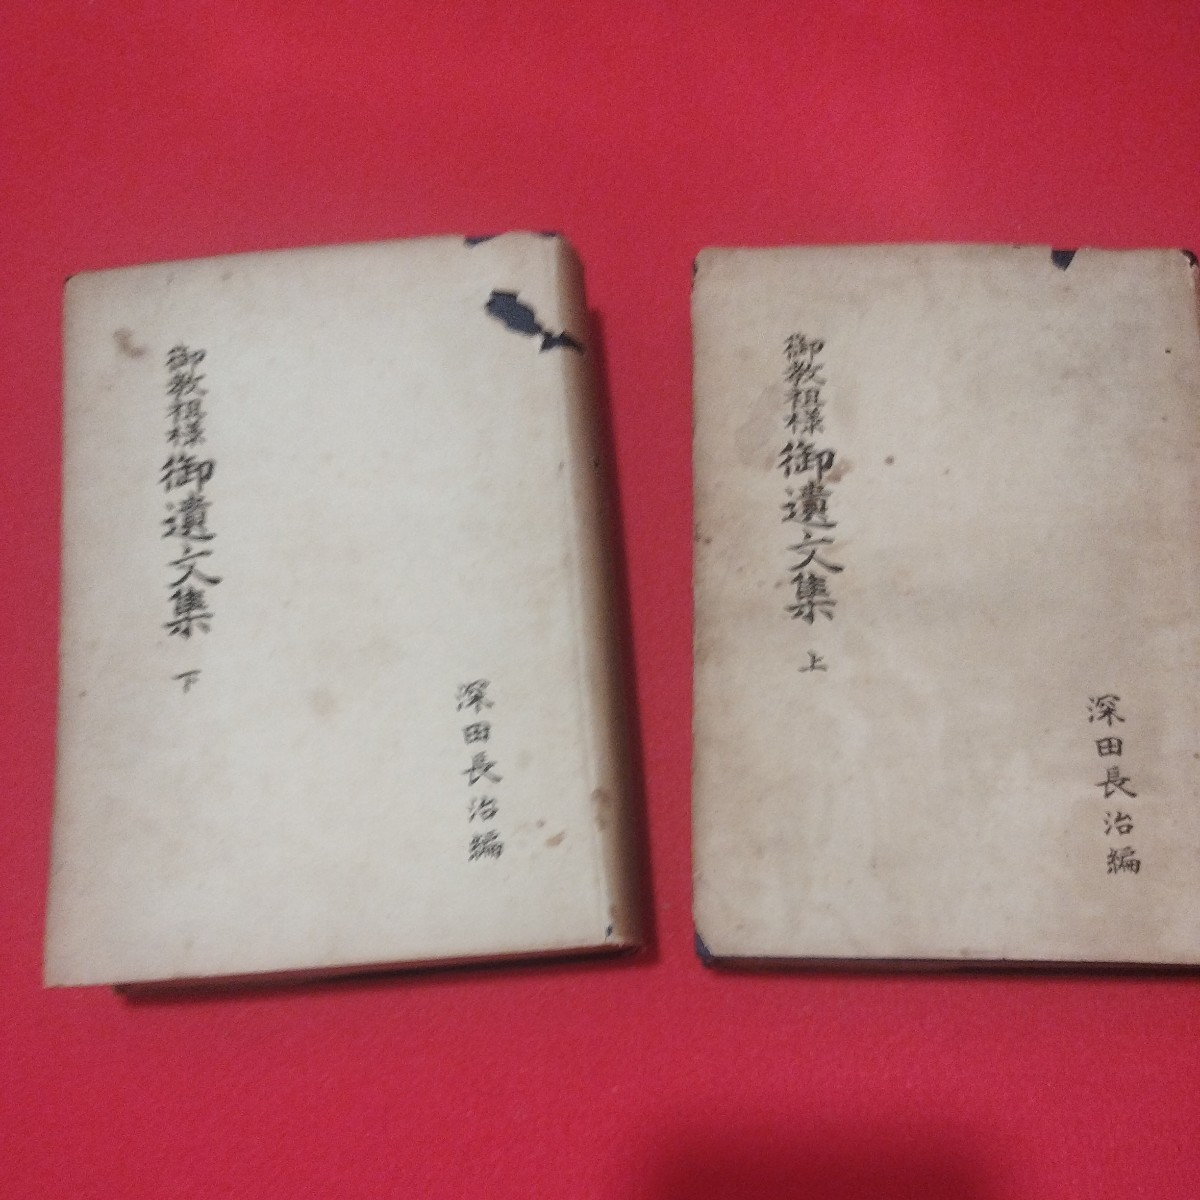 御教祖様御遺文集 下
深田長治編
御教祖様御遺文集 上
深田長治編